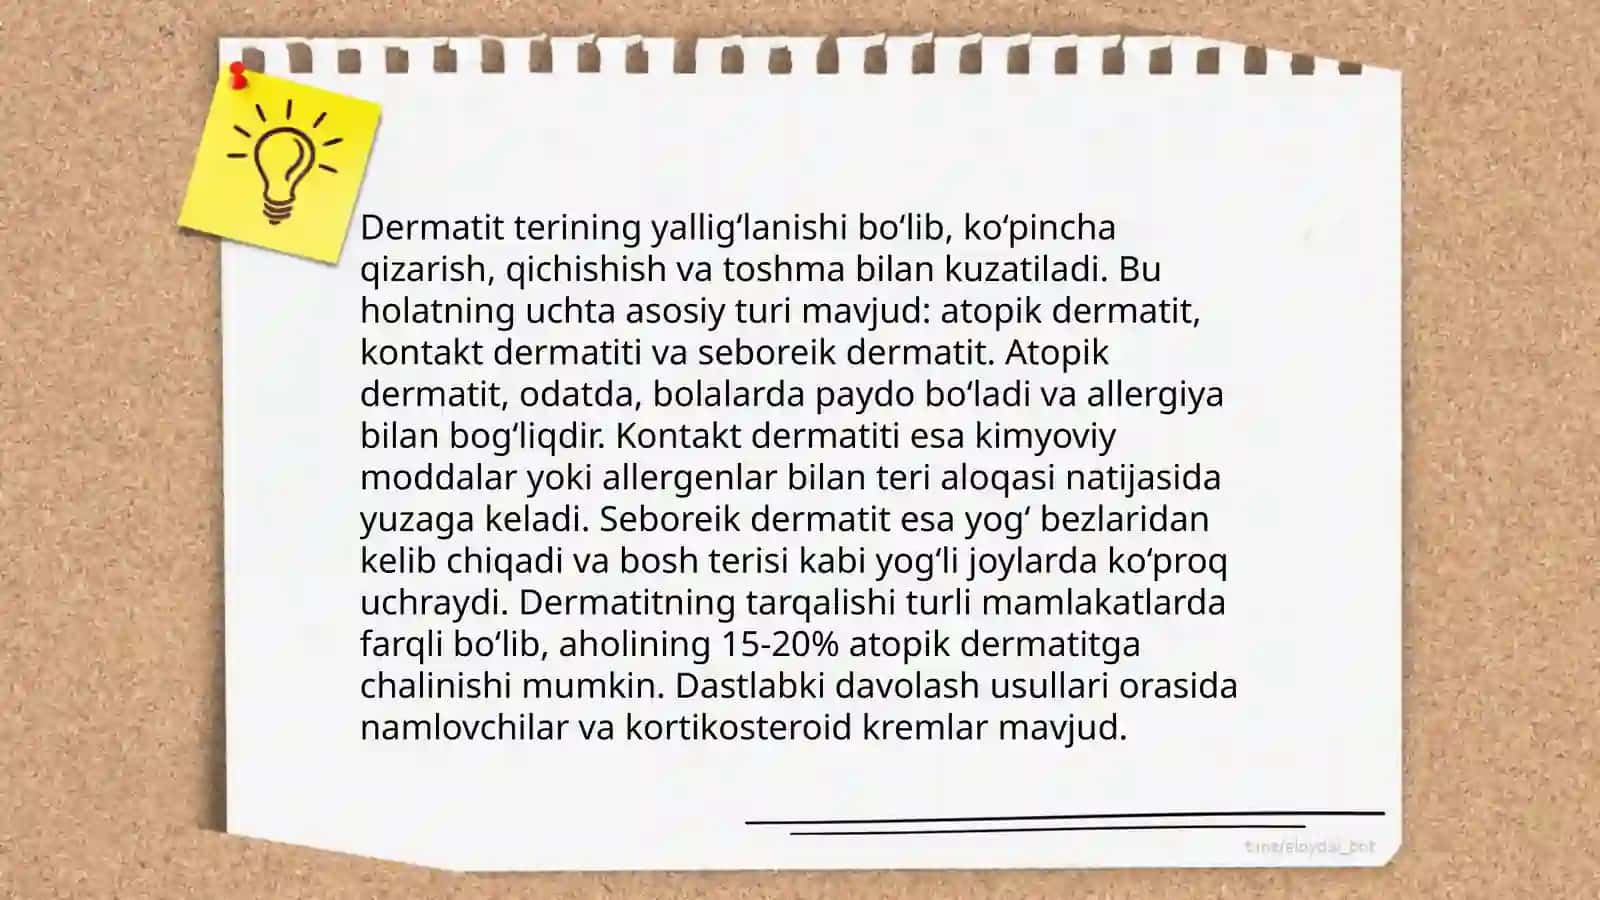 Dermatit terining yallig‘lanishi bo‘lib, ko‘pincha
qizarish, qichishish va toshma bilan kuzatiladi. Bu
holatning uchta asosiy turi mavjud: atopik dermatit,
kontakt dermatiti va seboreik dermatit. Atopik
dermatit, odatda, bolalarda paydo bo‘ladi va allergiya
bilan bog‘liqdir. Kontakt dermatiti esa kimyoviy
moddalar yoki allergenlar bilan teri aloqasi natijasida
yuzaga keladi. Seboreik dermatit esa yog‘ bezlaridan
kelib chiqadi va bosh terisi kabi yog‘li joylarda ko‘proq
uchraydi. Dermatitning tarqalishi turli mamlakatlarda
farqli bo‘lib, aholining 15-20% atopik dermatitga
chalinishi mumkin. Dastlabki davolash usullari orasida
namlovchilar va kortikosteroid kremlar mavjud.